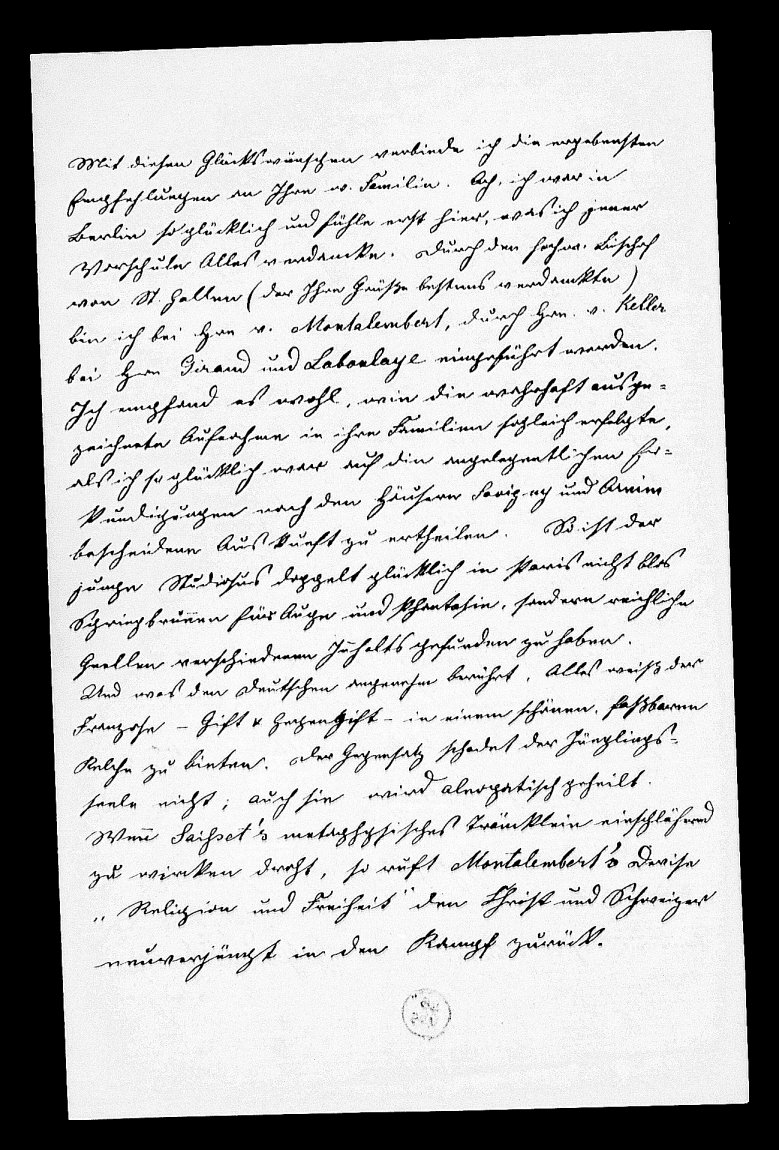 Mit diesen Glückswünschen verbinde ich die ergebensten
Empfehlungen an Ihre w. Familie. Ach, ich war in
Berlin so glücklich und fühle erst hier, was ich jener
Vorschule Alles verdancke. Durch den hochw. Bischof
von St. Gallen (der Ihre Grüße bestens verdanckte)
bin ich bei Hrn v. Montalembert, durch Hrn. v. Keller
bei Hrn Giraud und Laboulaye eingeführt worden.
Ich empfand es wohl, wie die wahrhaft ausge-
zeichnete Aufnahme in ihre Familien sogleich erfolgte,
als ich so glücklich war auf die angelegentlichen Er-
kundigungen nach den Häusern Savigny und Arnim
bescheidene Auskunft zu ertheilen. So ist der
junge Studiosus doppelt glücklich in Paris nicht blos
Springbrunnen fürs Auge und Phantasie, sondern reichliche
Quellen verschiedenen Inhalts gefunden zu haben.
Und was den Deutschen angenehm berührt, Alles weiß der
Franzose – Gift & Gegengift – in einem schönen, faßbaren
Kelche zu bieten. Der Gegensatz schadet der Jünglings-
seele nicht; auch sie wird aleopatisch geheilt.
Wenn Saisset's metaphysisches Tränklein einschläfernd
zu wircken droht, so ruft Montalembert's Devise
„Religion und Freiheit" den Christ und Schweizer
neuverjüngt in den Kampf zurück.